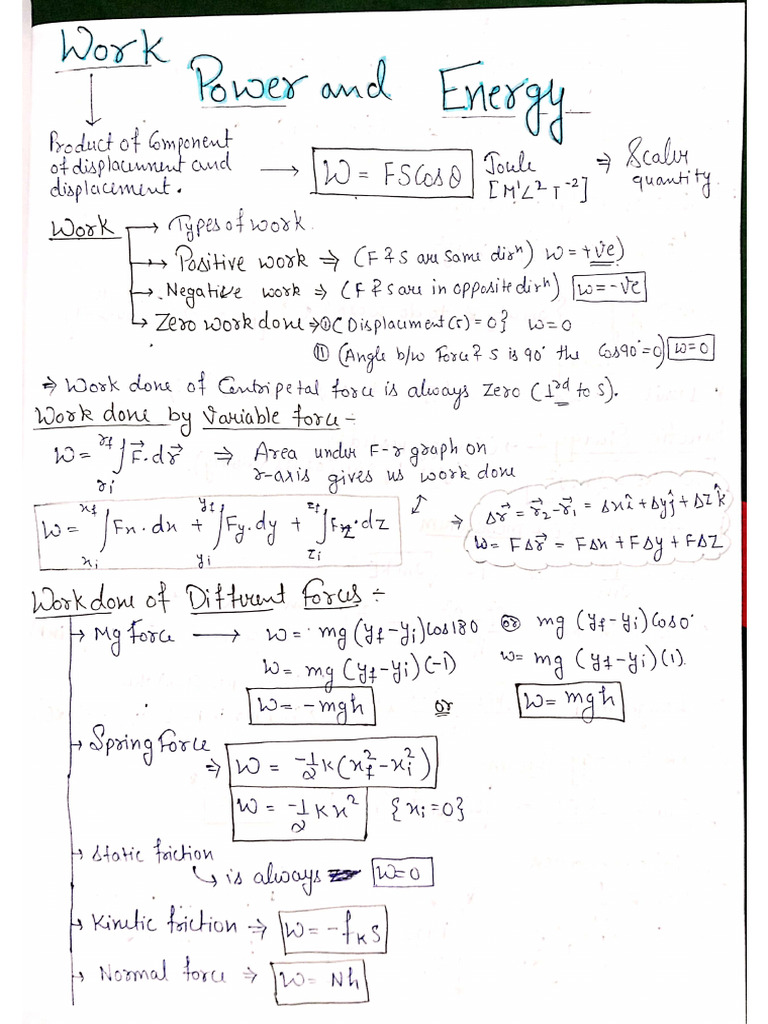 Work
Power and Energy
Product of Component
of displacement and
displacement.
→ W = FSCosθ Joule [M¹L²T⁻²] ⇒ Scalar quantity
Work → Types of work
→ Positive work ⇒ (F & S are same dirⁿ) W = +ve)
→ Negative work ⇒ (F & S are in opposite dirⁿ) W = -ve
→ Zero work done ⇒ ① (Displacement (s) = 0} W = 0
⑪ (Angle b/w Force & S is 90° the Cos90° = 0) W = 0
⇒ Work done of Centripetal force is always Zero (⊥rd to S).
Work done by Variable force :-
W = ∫_{ri}^{rf} F⃗.dr⃗ ⇒ Area under F-r graph on
r-axis gives us work done
W = ∫_{xi}^{xf} Fx.dx + ∫_{yi}^{yf} Fy.dy + ∫_{zi}^{zf} Fz.dz
⇒ Δr⃗ = r⃗₂ - r⃗₁ = Δxî + Δyĵ + ΔZk̂
W = FΔr⃗ = FΔx + FΔy + FΔZ
Work done of Different forces :-
→ Mg force → W = mg(yf - yi)Cos180 or mg(yf - yi)Cos0°
W = mg(yf - yi)(-1) W = mg(yf - yi)(1).
W = -mgh or W = mgh
→ Spring Force
⇒ W = -1/2 K(x²f - x²i)
W = -1/2 Kx² {xi = 0}
→ Static friction
↳ is always W = 0
→ Kinetic friction ⇒ W = -fKS
→ Normal force ⇒ W = Nh